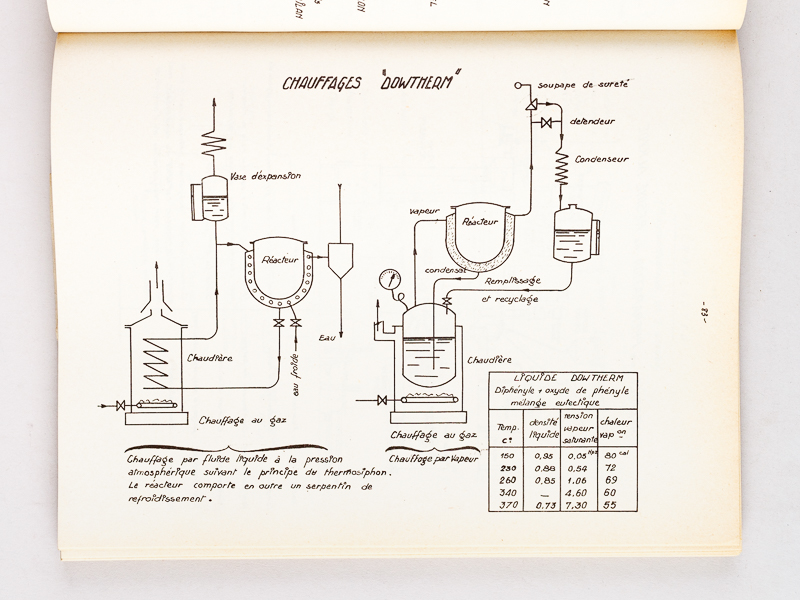 CHAUFFAGES "DOWTHERM"
soupape de sureté
detendeur
Condenseur
Vase d'expansion
vapeur
Réacteur
Réacteur
condensat
Remplissage
et recyclage
- 83 -
Eau
eau froide
Chaudière
Chaudière
Chauffage au gaz
Chauffage au gaz
Chauffage par fluide liquide à la pression
atmosphérique suivant le principe du thermosiphon.
Le réacteur comporte en outre un serpentin de
refroidissement.
Chauffage par Vapeur
LIQUIDE DOWTHERM
Diphényle + oxyde de phényle
mélange eutectique
Temp. C° densité liquide tension vapeur saturante chaleur vap on
150 0,95 0,05 80 cal
230 0.88 0,54 72
260 0,85 1.06 69
340 — 4.60 60
370 0.73 7.30 55